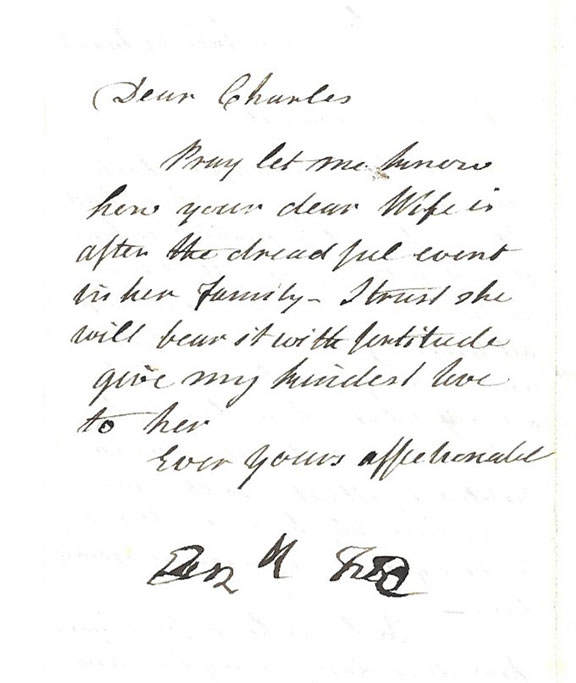 Dear Charles
Pray let me know
how your dear Wife is
after the dreadful event
in her family - I trust she
will bear it with fortitude
give my kindest love
to her
Ever yours affectionate